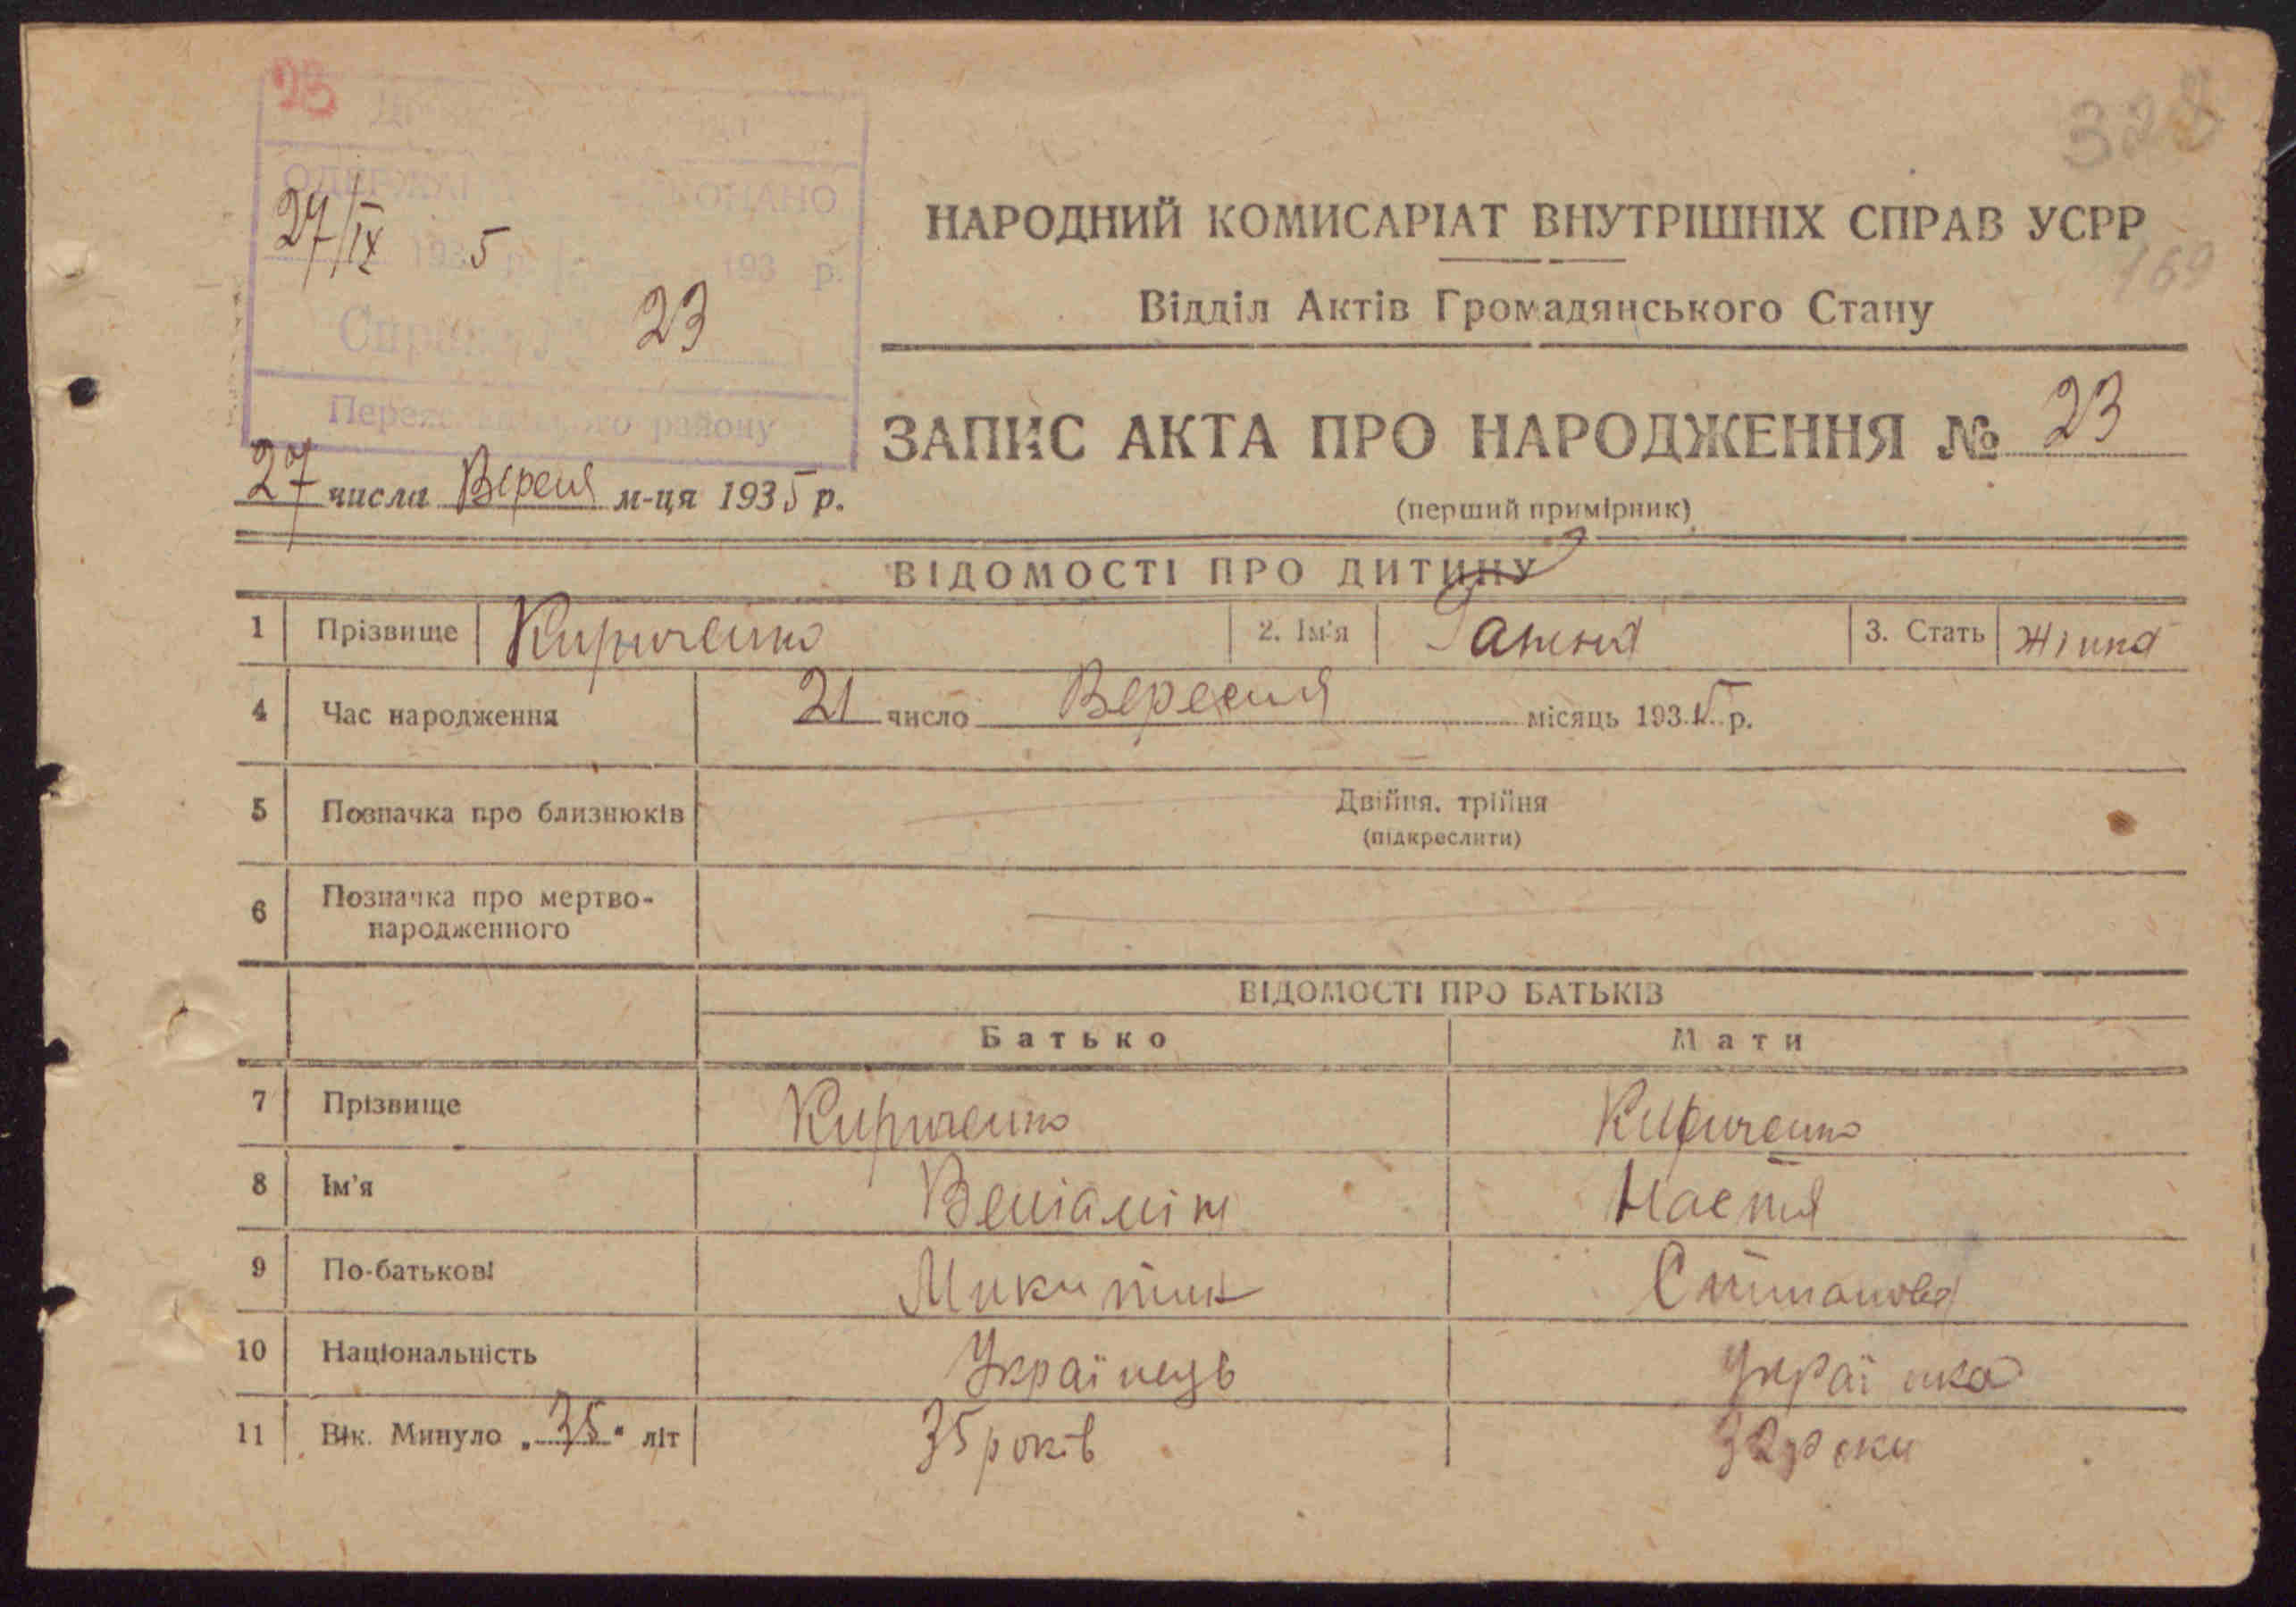 93
328
ОДЕРЖАНО ВИКОНАНО
27/IX 193 5 р. 193 р.
Справа № 23
району
27 числа Вересня м-ця 1935 р.
НАРОДНИЙ КОМИСАРІАТ ВНУТРІШНІХ СПРАВ УСРР
169
Відділ Актів Громадянського Стану
ЗАПИС АКТА ПРО НАРОДЖЕННЯ № 23
(перший примірник)
ВІДОМОСТІ ПРО ДИТИНУ
1 Прізвище Кириченко 2. Ім'я Ганна 3. Стать жінка
4 Час народження 21 число Вересня місяць 1935 р.
5 Позначка про близнюків Двійня, трійня
(підкреслити)
6 Позначка про мертво-
народженного
ВІДОМОСТІ ПРО БАТЬКІВ
Батько Мати
7 Прізвище Кириченко Кириченко
8 Ім'я Веніамін Настя
9 По-батькові Микитин Степанова
10 Національність Українець Українка
11 Вік. Минуло „35“ літ 35 років 32 роки